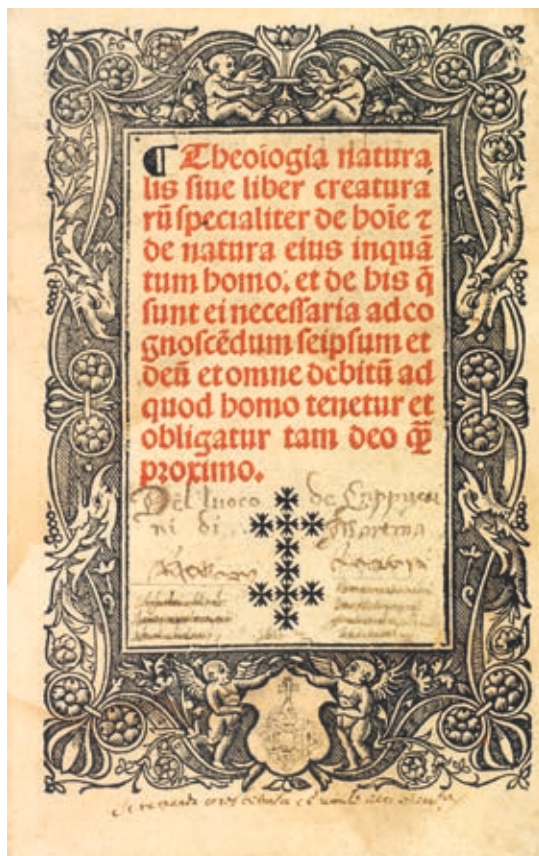 ¶ Theologia natura
lis siue liber creatura
rū specialiter de hoīe ⁊
de natura eius inquā
tum homo. et de his q̄
sunt ei necessaria ad co
gnoscēdum seipsum et
deū et omne debitū ad
quod homo tenetur et
obligatur tam deo qȝ
proximo.
Del luoco de Cappucci
ni di Martina